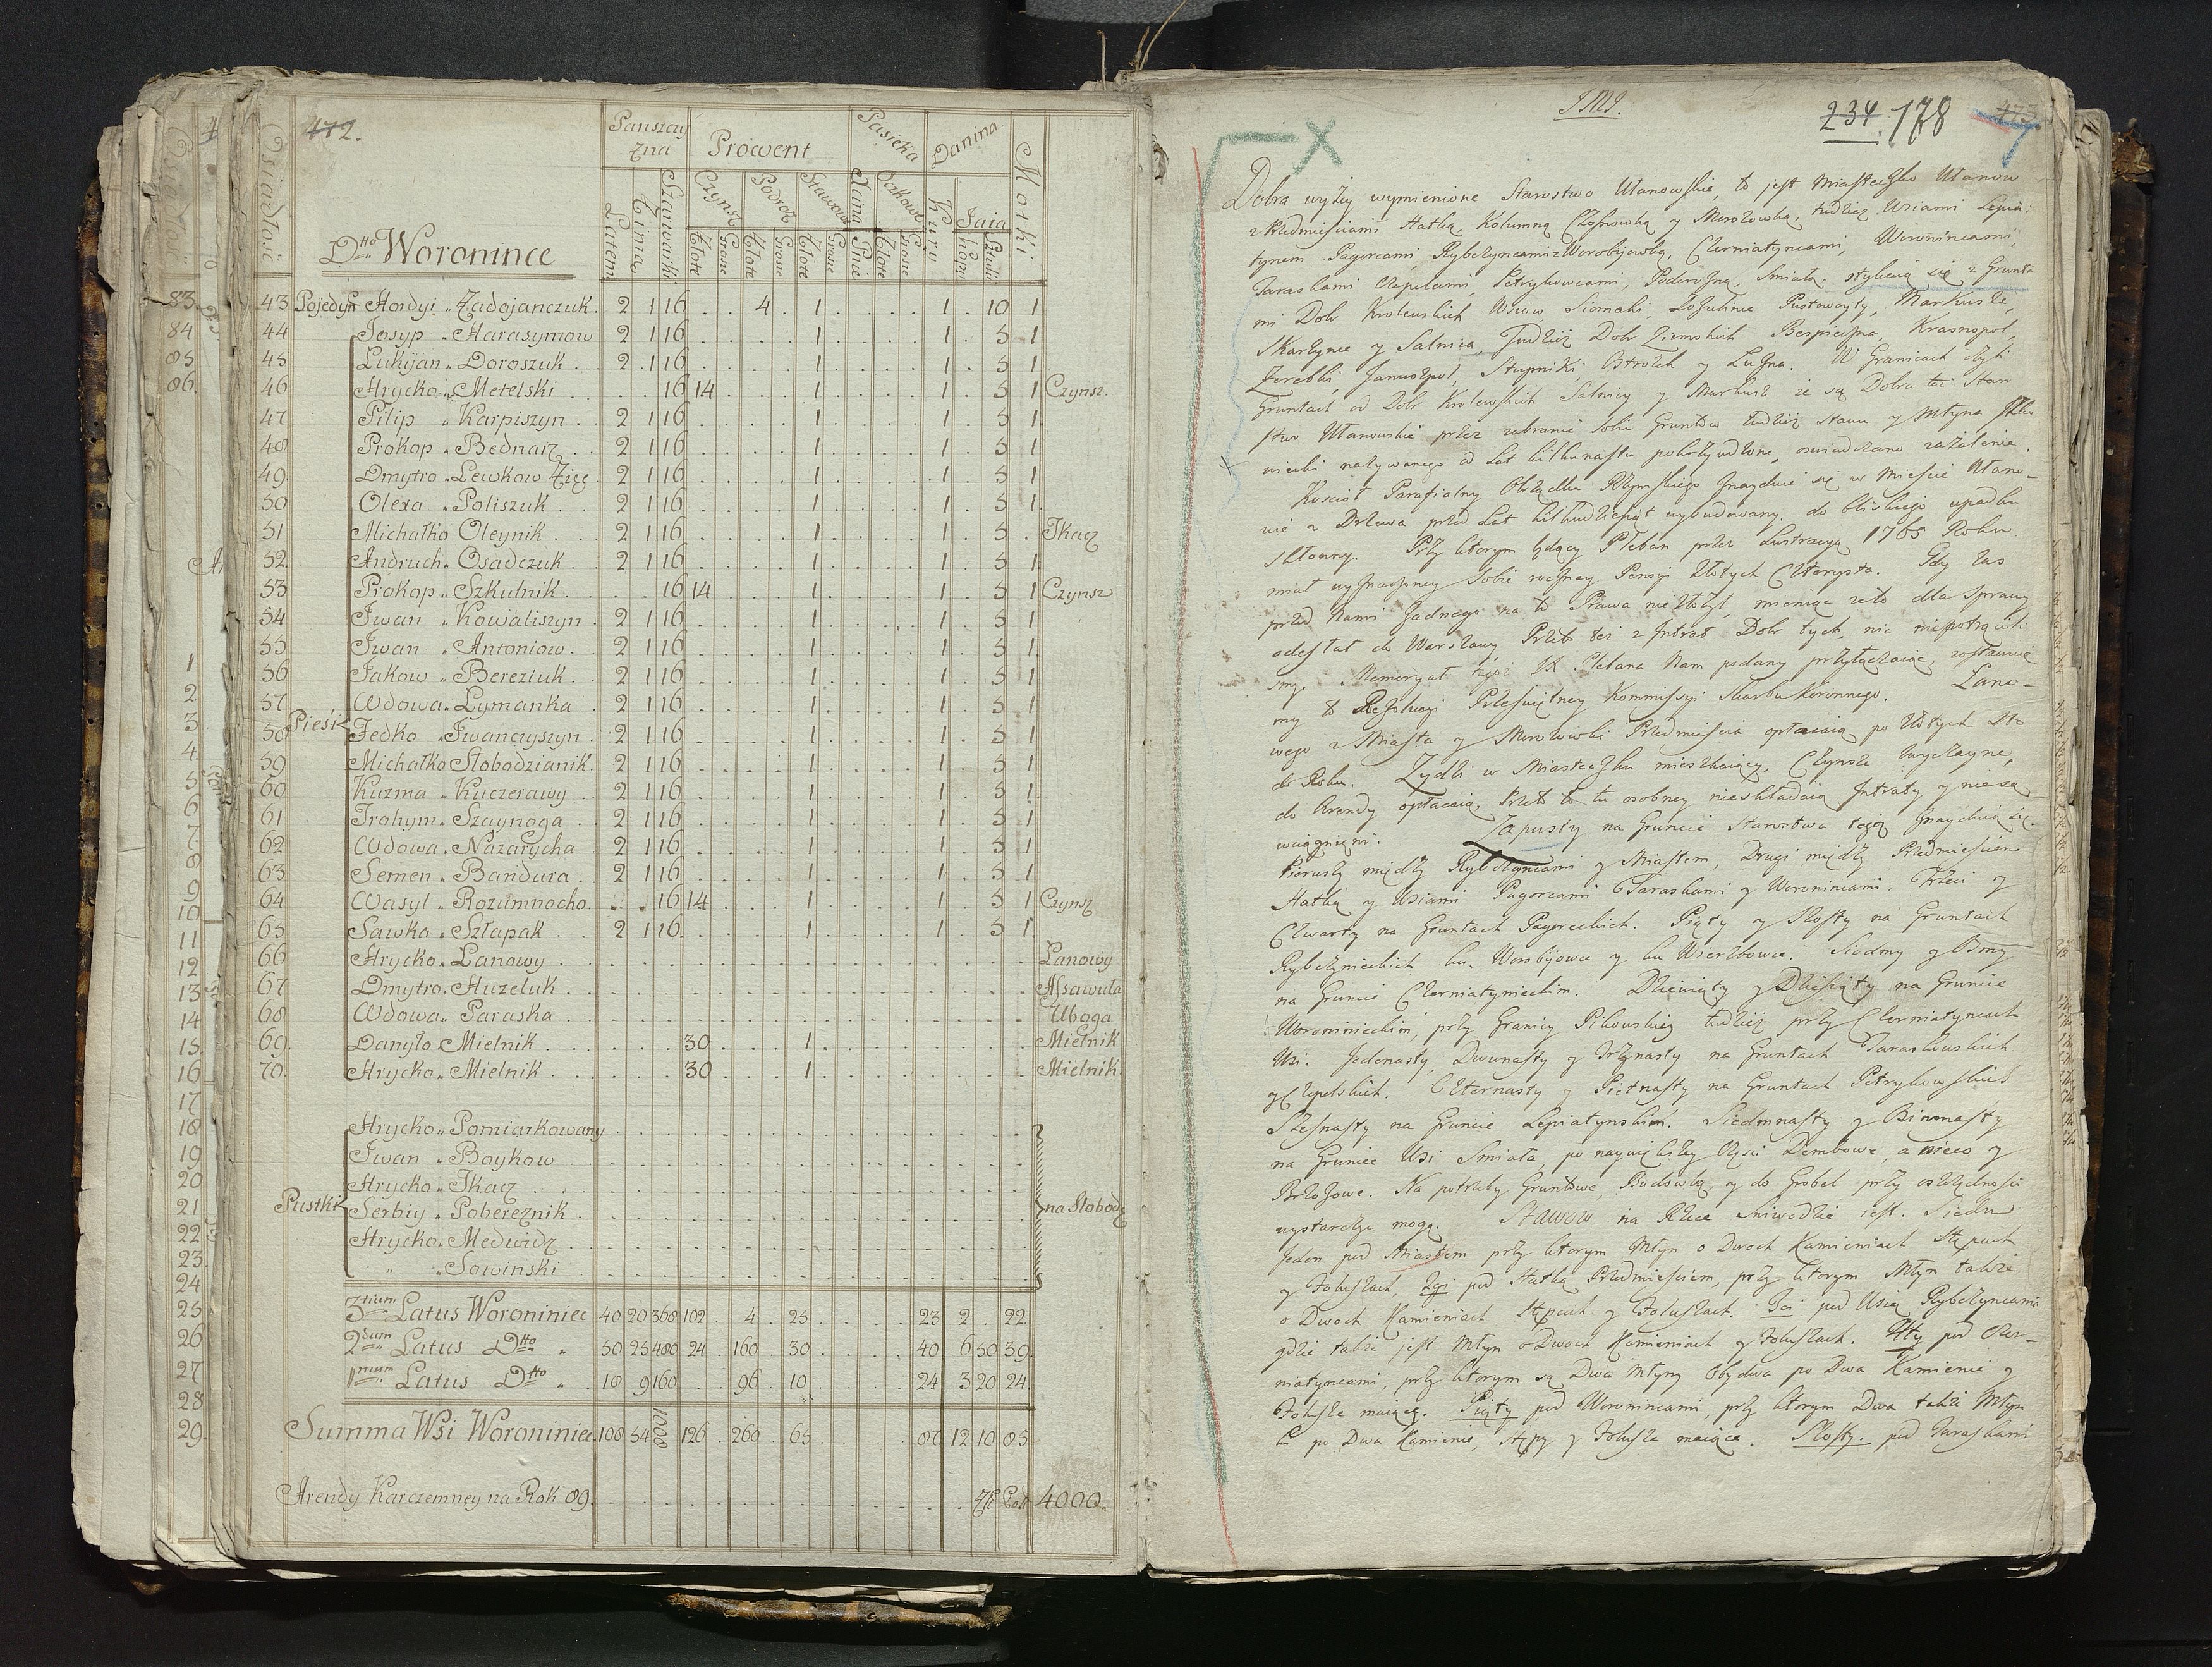 472.
Panszczyzna Prowent Pasieka Danina Motki
Osiadłość
Latem Zimą Szarwarki Czynsz Podroż Stawowe Dana Oczkowe Kury Jaia
Złote Grosze Złote Grosze Złote Grosze Pnie Złote Grosze Kopy Sztuki
Dtto Woronince
43 Pojedyn Hordyi Zadojanczuk 2 1 16 4 1 1 10 1
44 Josyp Harasymow 2 1 16 1 1 5 1
45 Lukijan Doroszuk 2 1 16 1 1 5 1
46 Hrycko Metelski 16 14 1 1 5 1 Czynsz
47 Pilip Karpiszyn 2 1 16 1 1 5 1
48 Prokop Bednarz 2 1 16 1 1 5 1
49 Dmytro Lewkow Zięc 2 1 16 1 1 5 1
50 Olexa Poliszuk 2 1 16 1 1 5 1
51 Michałko Oleynik 2 1 16 1 1 5 . Tkacz
52 Andruch Osadczuk 2 1 16 1 1 5 1
53 Prokop Szkulnik 16 14 1 1 5 1 Czynsz
54 Iwan Kowaliszyn 2 1 16 1 1 5 1
55 Iwan Antoniow 2 1 16 1 1 5 1
56 Jakow Bereziuk 2 1 16 1 1 5 1
57 Wdowa Lymanka 2 1 16 1 1 5 1
58 Piesi Fedko Iwanczyszyn 2 1 16 1 1 5 1
59 Michałko Słobodzianik 2 1 16 1 1 5 1
60 Kuzma Kuczerawy 2 1 16 1 1 5 1
61 Trohym Szaynoga 2 1 16 1 1 5 1
62 Wdowa Nazarycha 2 1 16 1 1 5 1
63 Semen Bandura 2 1 16 1 1 5 1
64 Wasyl Rozumnocho 16 14 1 1 5 1 Czynsz
65 Sawka Sztapak 2 1 16 1 1 5 1
66 Hrycko Lanowy Lanowy
67 Dmytro Huzeluk Assawuła
68 Wdowa Paraska Uboga
69 Danyło Mielnik 30 1 Mielnik
70 Hrycko Mielnik 30 1 Mielnik
Hrycko Pomiarkowany
Iwan Boykow
Hrycko Tkacz
Pustki Serbiy Pobereznik na Słobodz
Hrycko Medwidz
" Sowinski
3tium Latus Woroniniec 40 20 368 102 4 25 23 2 22
2dum Latus Dtto 50 25 480 24 160 30 40 6 50 39
1mum Latus Dtto 18 9 160 96 10 24 3 20 24
Summa Wsi Woroniniec 108 54 1008 126 260 65 87 12 10 85
Arendy Karczemney na Rok 89 Złł Poll 4000.
JMJ.
234. 178 473
Dobra wyżey wymienione Starostwo Ułanowskie, to jest Miasteczko Ułanow
z Przedmieściami Hatką, Kolumną Czosnowką y Morozowką, tudzież Wsiami Lepia:
tynem Pagorcami, Rybczyncami z Worobijowką, Czerniatyncami, Woronincami,
Taraskami Czepelami, Petrykowcami, Podorożną, Smiałą, stykaią się z Grunta
mi Dobr Krolewskich Wsiow Siomaki, Łozulince Pustowoyty, Markusze,
Skarżynce y Salnica, Tudzież Dobr Ziemskich Bespieczna, Krasnopol,
Zerebki, Januszpol, Stupniki, Ostrożek y Łużna. W Granicach czyli
Gruntach od Dobr Krolewskich Salnicy y Markusz że są Dobra też Star
stwo Ułanowskie przez zabranie sobie Gruntow tudzież stawu y Młyna
nazywanego od Lat kilkunastu pokrzywdzone, oswiadczano zażalenie
Kościoł Parafialny Obrządku Rzymskiego znayduie się w Mieście Ułano-
wie z Drzewa przed Lat kilkudziesiąt wybudowany, do bliskiego upadku
skłonny. Przy ktorym będący Pleban przez Lustracyą 1765 Roku
miał wyznaczoney sobie roczney Pensyi Złotych Czterysta. Gdy zas
przed Nami żadnego na to Prawa nie złożył, mieniąc że to dla sprawy
odesłał do Warszawy Przeto też z Intrat Dobr tych, nic niepotrącili
smy. Memoryał tegoż JX Plebana Nam podany przyłączaiąc, zostawuie
my to Rezolucyi Prześwietney Kommissyi Skarbu Koronnego. Lano-
wego z Miasta y Morozowki Przedmieścia opłacaią po Złotych Sto
do Roku. Zydzi w Miasteczku mieszkaiący, Czynsze zwyczayne,
do Arendy opłacaią, Przeto to tu osobney nieskładaią Intraty y nie są
wciągnięni. Zapusty na Gruncie Starostwa tego znayduią się.
Pierwszy między Rybczyncami y Miastem, Drugi między Przedmieściem
Hatką y Wsiami Pagorcami Taraskami y Woronincami. Trzeci y
Czwarty na Gruntach Pagoreckich. Piąty y Szosty na Gruntach
Rybczynieckich ku Worobijowce y ku Wierzbowce. Siodmy y Osmy
na Gruncie Czerniatynieckim. Dziewiąty y Dziesiąty na Gruncie
Woroninieckim, przy Granicy Pikowskiey tudzież przy Czerniatyncach
Wsi. Jedenasty, Dwunasty y Trzynasty na Gruntach Taraskowskich
y Czepelskich. Czternasty y Piętnasty na Gruntach Petrykowskich
Szesnasty na Gruncie Lepiatynskim. Siedmnasty y Osimnasty
na Gruncie Wsi Smiała, po naywiększey Części Dembowe, a nieco y
Brzozowe. Na potrzeby Gruntowe, Budowlą, y do Grobel przy oszczędności
wystarczyć mogą. Stawow na Rzece Sniwodzie iest. Siedm
Jeden pod Miastem przy ktorym Młyn o Dwoch Kamieniach Stępach
y Foluszach, 2gi pod Hatką Przedmieściem, przy ktorym Młyn także
o Dwoch Kamieniach Stępach y Foluszach. 3ci pod Wsią Rybczyncami
gdzie także jest Młyn o Dwoch Kamieniach y Foluszach. 4ty pod Czer-
niatyncami, przy ktorym są Dwa Młyny Obydwa po Dwa Kamienie y
Folusze maiące. Piąty pod Woronincami, przy ktorym Dwa także Młyn
ki po Dwa Kamienie, stępy y Folusze maiące. Szosty. pod Taraskami